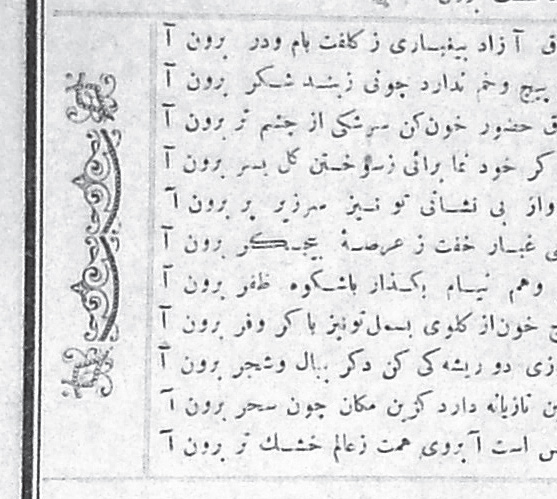 آزاد بیغباری ز کلفت بام ودر برون آ
پیچ وخم ندارد چونی زبند شکر برون آ
حضور خون کن سرشکی از چشم تر برون آ
کر خود نما برائی زسوختن کل بسر برون آ
واز بی نشانی تو نیز سرزیر پر برون آ
غبار خفت ز عرصهٔ بیجگر برون آ
وهم نیام بکذار باشکوه ظفر برون آ
خون از کلوی بسمل تونیز با کر وفر برون آ
دو ریشه کی کن دکر ببال وشجر برون آ
تازیانه دارد کزین مکان چون سحر برون آ
است آبروی همت زعالم خشك تر برون آ